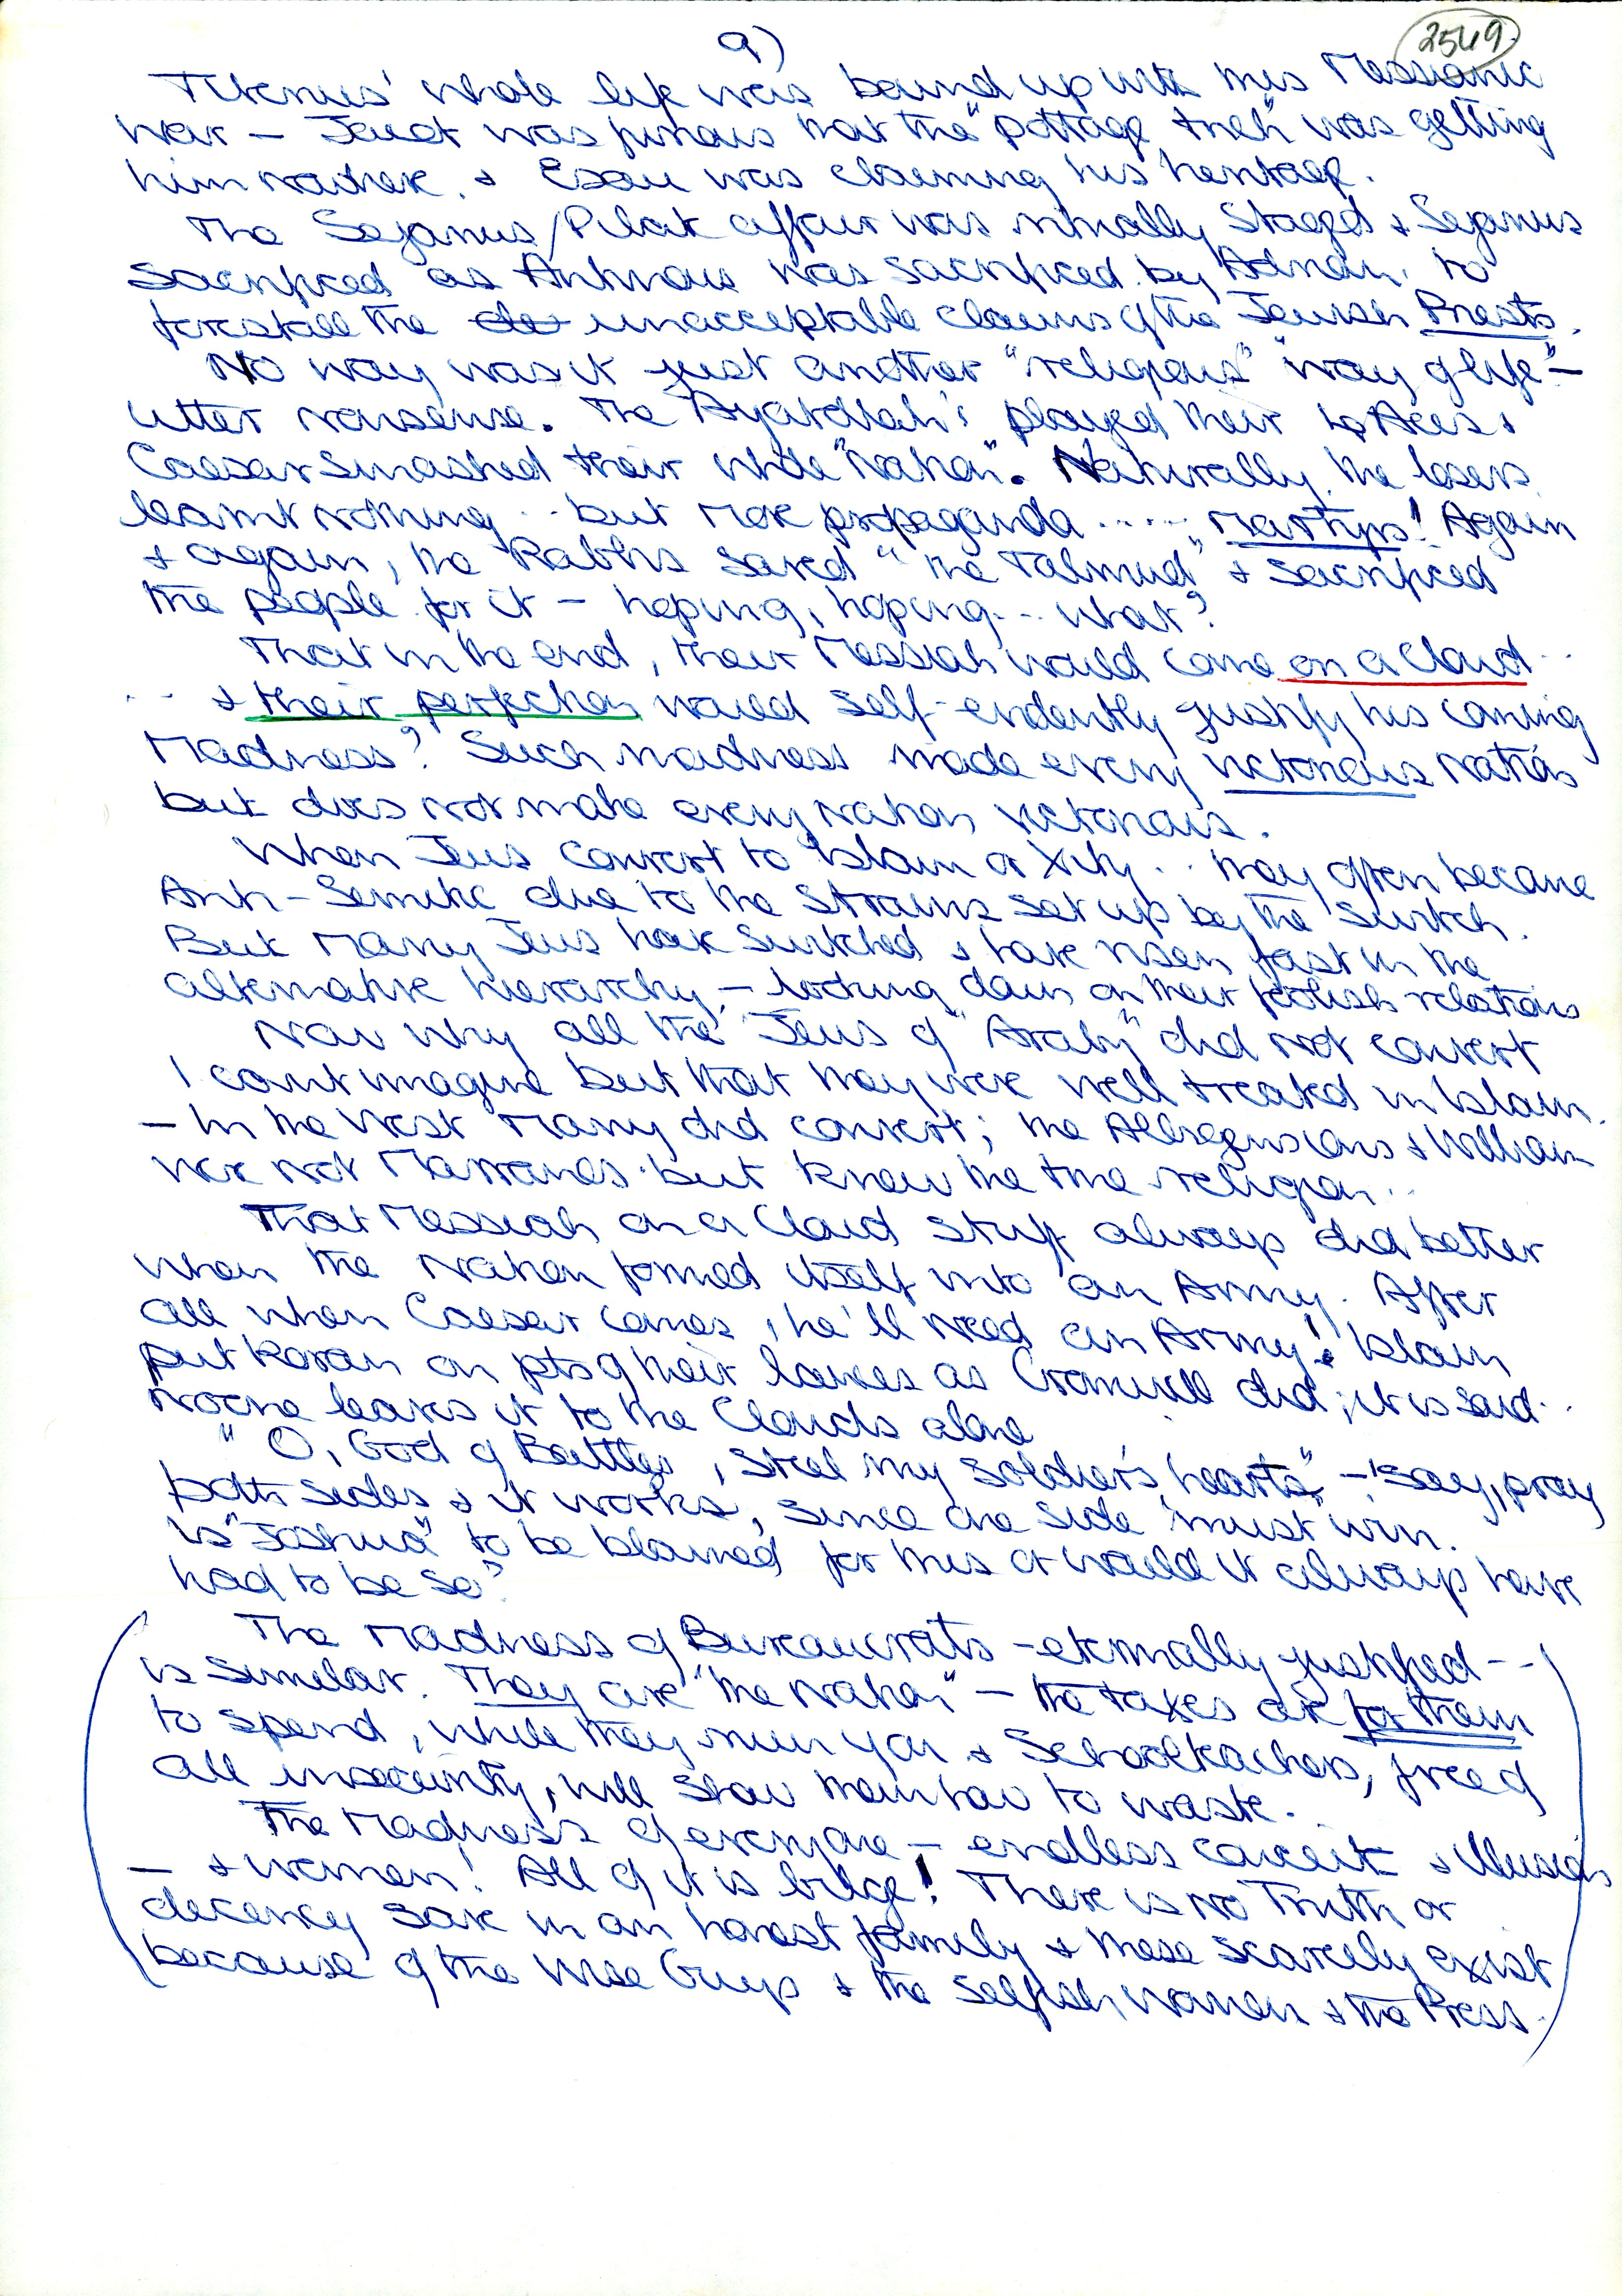 9)
2549
Tiberius' whole life was bound up with this Messianic
War — Jacob was furious that the "pottage trick" was getting
him nowhere, & Esau was claiming his heritage.
The Sejanus/Pilate affair was ritually staged & Sejanus
sacrificed as Antinous was sacrificed by Adrian, to
forestall the unacceptable claims of the Jewish Priests.
No way was it just another "religious" "way of life" —
utter nonsense. The Ayatollah's played their Aces &
Caesar smashed their whole "Nation". Naturally, the losers
learnt nothing .. but more propaganda ..... Martyrs! Again
& again, the Rabbis saved "the Talmud" & sacrificed
the people for it — hoping, hoping... what?
That in the end, their Messiah would come on a Cloud ..
... & their perfection would self-evidently justify his coming
Madness? Such madness made every victorious nation
but does not make every nation victorious.
When Jews convert to Islam or Xity .. they often became
Anti-Semitic due to the strains set up by the switch.
But Many Jews have switched & have risen fast in the
alternative hierarchy, — looking down on their foolish relations
Now why all the Jews of "Araby" did not convert
I can't imagine but that they were well treated in Islam.
— In the West Many did convert; the Albigensians & William
were not Marranos but knew the true religion ..
That Messiah on a Cloud stuff always did better
when the Nation formed itself into an Army. After
all when Caesar comes, he'll need an Army! Islam
put Koran on pts of their lances as Cromwell did, it is said ..
Noone leaves it to the Clouds alone
"O, God of Battles, steel my soldier's hearts" — say, pray
both sides & it works, since one side must win.
Is "Joshua" to be blamed for this or would it always have
had to be so?
The Madness of Bureaucrats — eternally justified --
is similar. They are "the Nation" — the taxes are for them
to spend, while they ruin you & Schoolteachers, free of
all insecurity, will show them how to waste.
The Madness of everyone — endless conceit & illusion
— & women! All of it is bilge! There is no Truth or
decency save in an honest family & these scarcely exist
because of the Wise Guys & the selfish women & the Press.